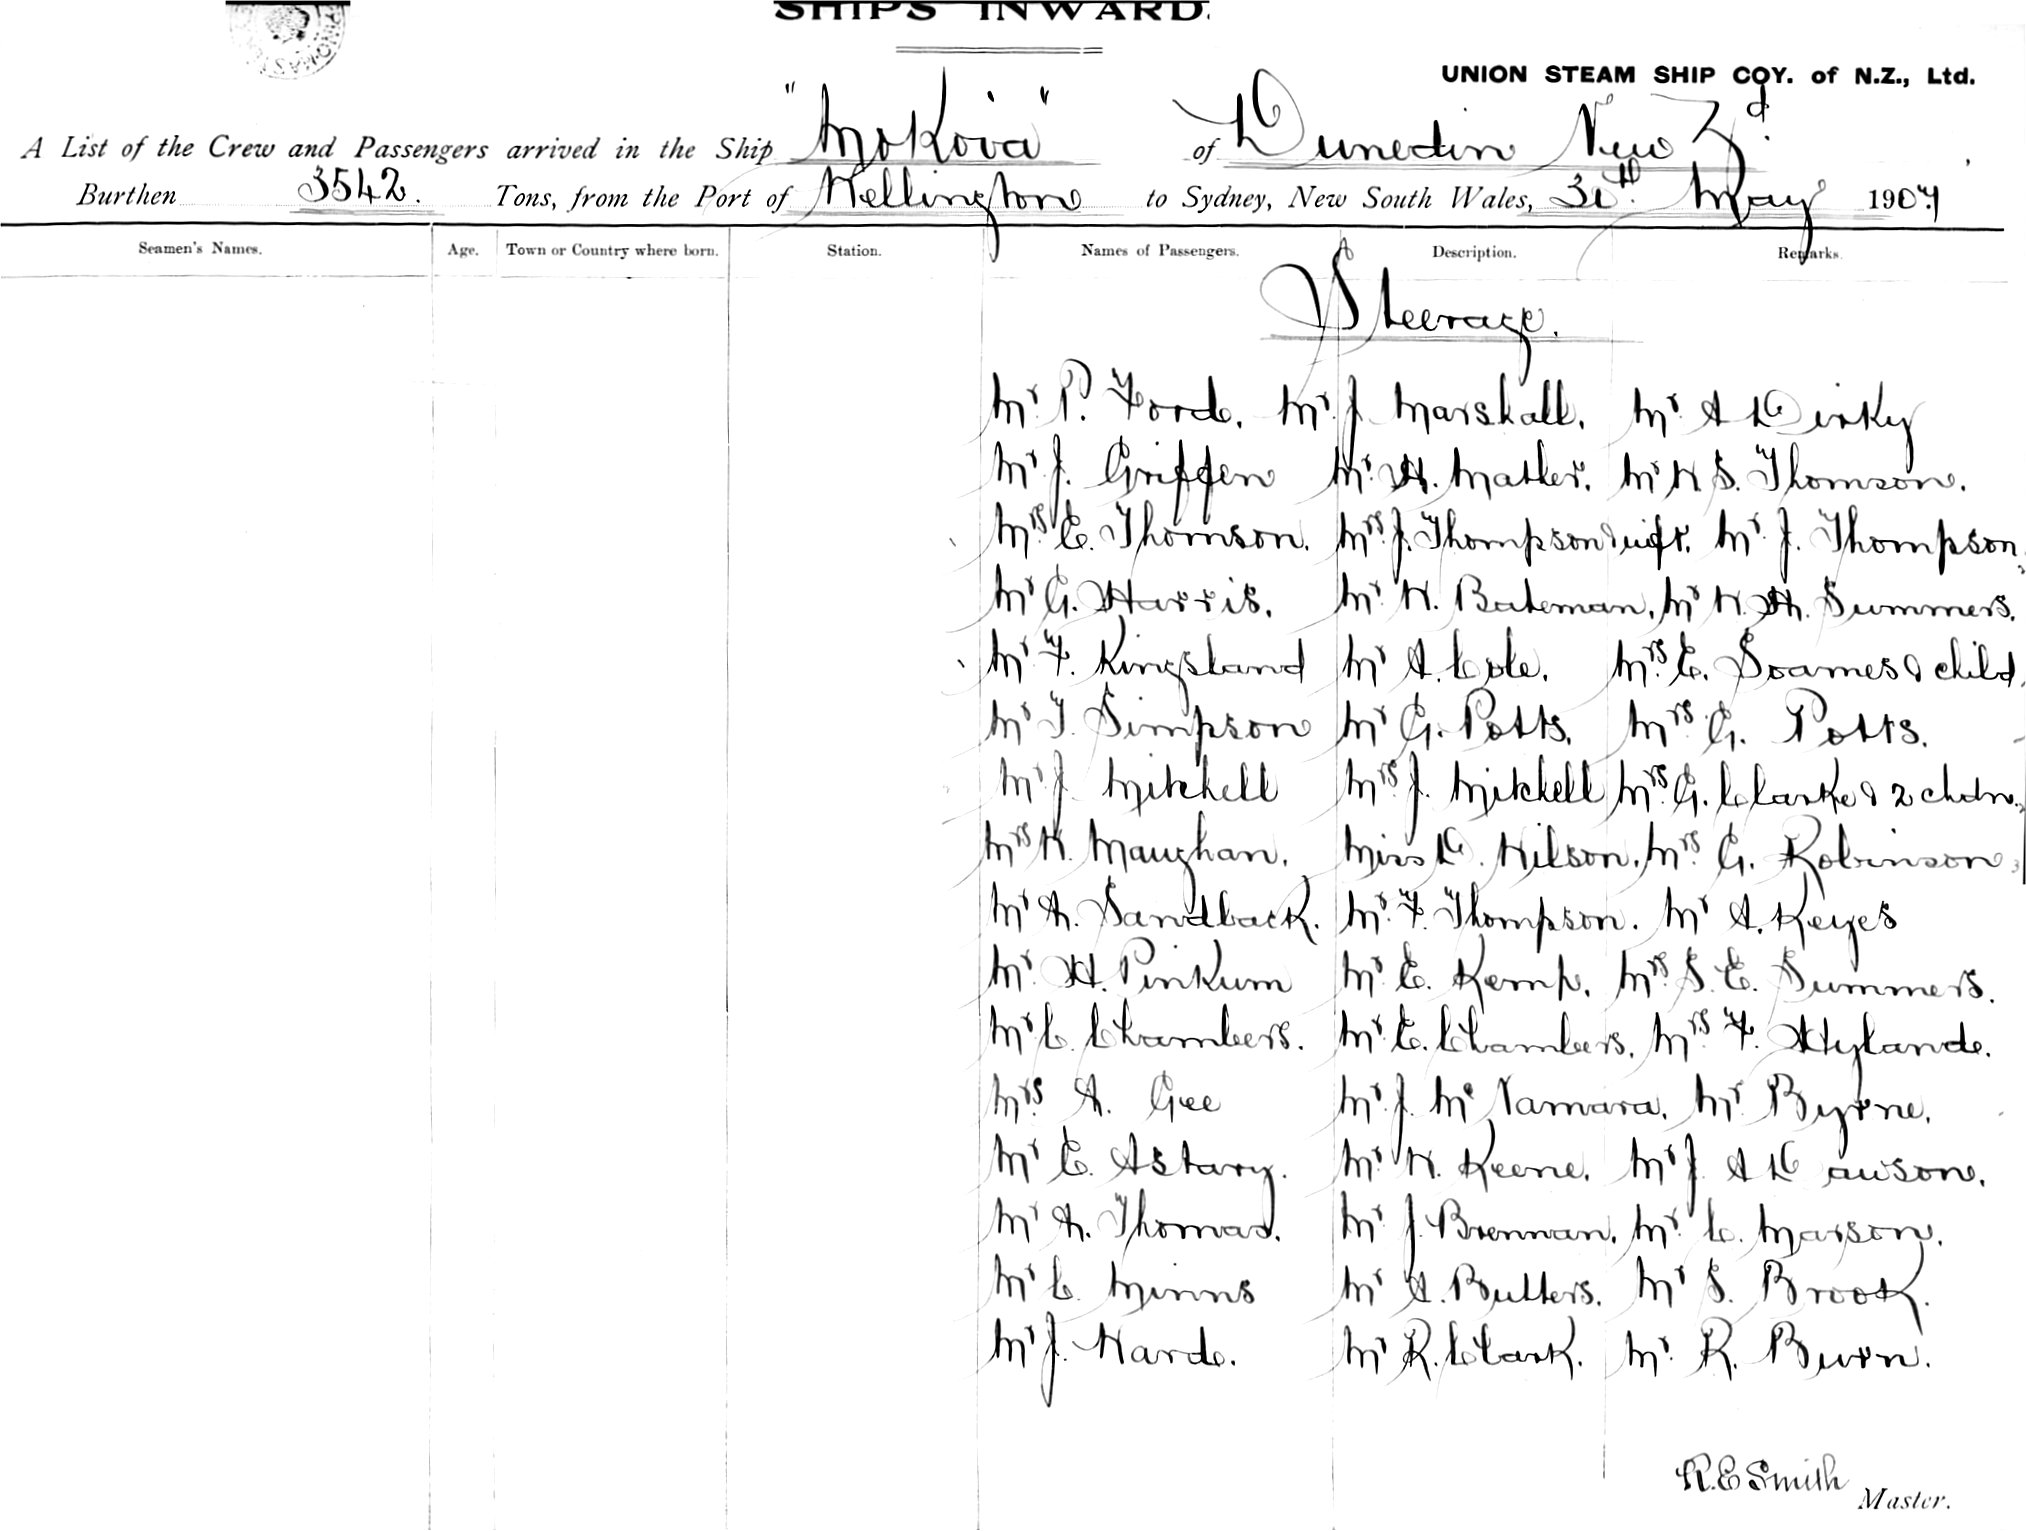 SHIPS INWARD.
UNION STEAM SHIP COY. of N.Z., Ltd.
A List of the Crew and Passengers arrived in the Ship "Mokoia" of Dunedin New Zd.
Burthen 3542. Tons, from the Port of Wellington to Sydney, New South Wales, 30th. May 1907
Seamen's Names. Age. Town or Country where born. Station. Names of Passengers. Description. Remarks.
Steerage.
Mr P. Forde. Mr J Marshall. Mr A Dirky
Mr J. Griffen Mr H. Mather. Mr W S. Thomson.
Mrs E. Thomson. Mrs J. Thompson & inft. Mr J. Thompson.
Mr G. Harris. Mr W. Bateman. Mr W. H. Summers.
Mr F. Kingsland Mr A. Cole. Mrs E. Soames & child.
Mr T. Simpson Mr G. Potts. Mrs G. Potts.
Mr J Mitchell Mrs J. Mitchell Mrs G. Clarke & 2 chdn.
Mrs W. Maughan. Miss D. Wilson. Mrs G. Robinson
Mr A. Sandback. Mr F. Thompson. Mr A. Keyes
Mr H. Pinkum Mr E. Kemp. Mrs S. E. Summers.
Mr C. Chambers. Mr E. Chambers. Mrs F. Hylande.
Mrs A. Gee Mr J. McNamara. Mr Byrne.
Mr E. Astary. Mr W. Keene. Mr J. A Dawson.
Mr A. Thomas. Mr J. Brennan. Mr C. Marson.
Mr C. Minns Mr A. Butters. Mr S. Brook.
Mr J. Warde. Mr R. Clark. Mr R. Burn.
R. E Smith
Master.